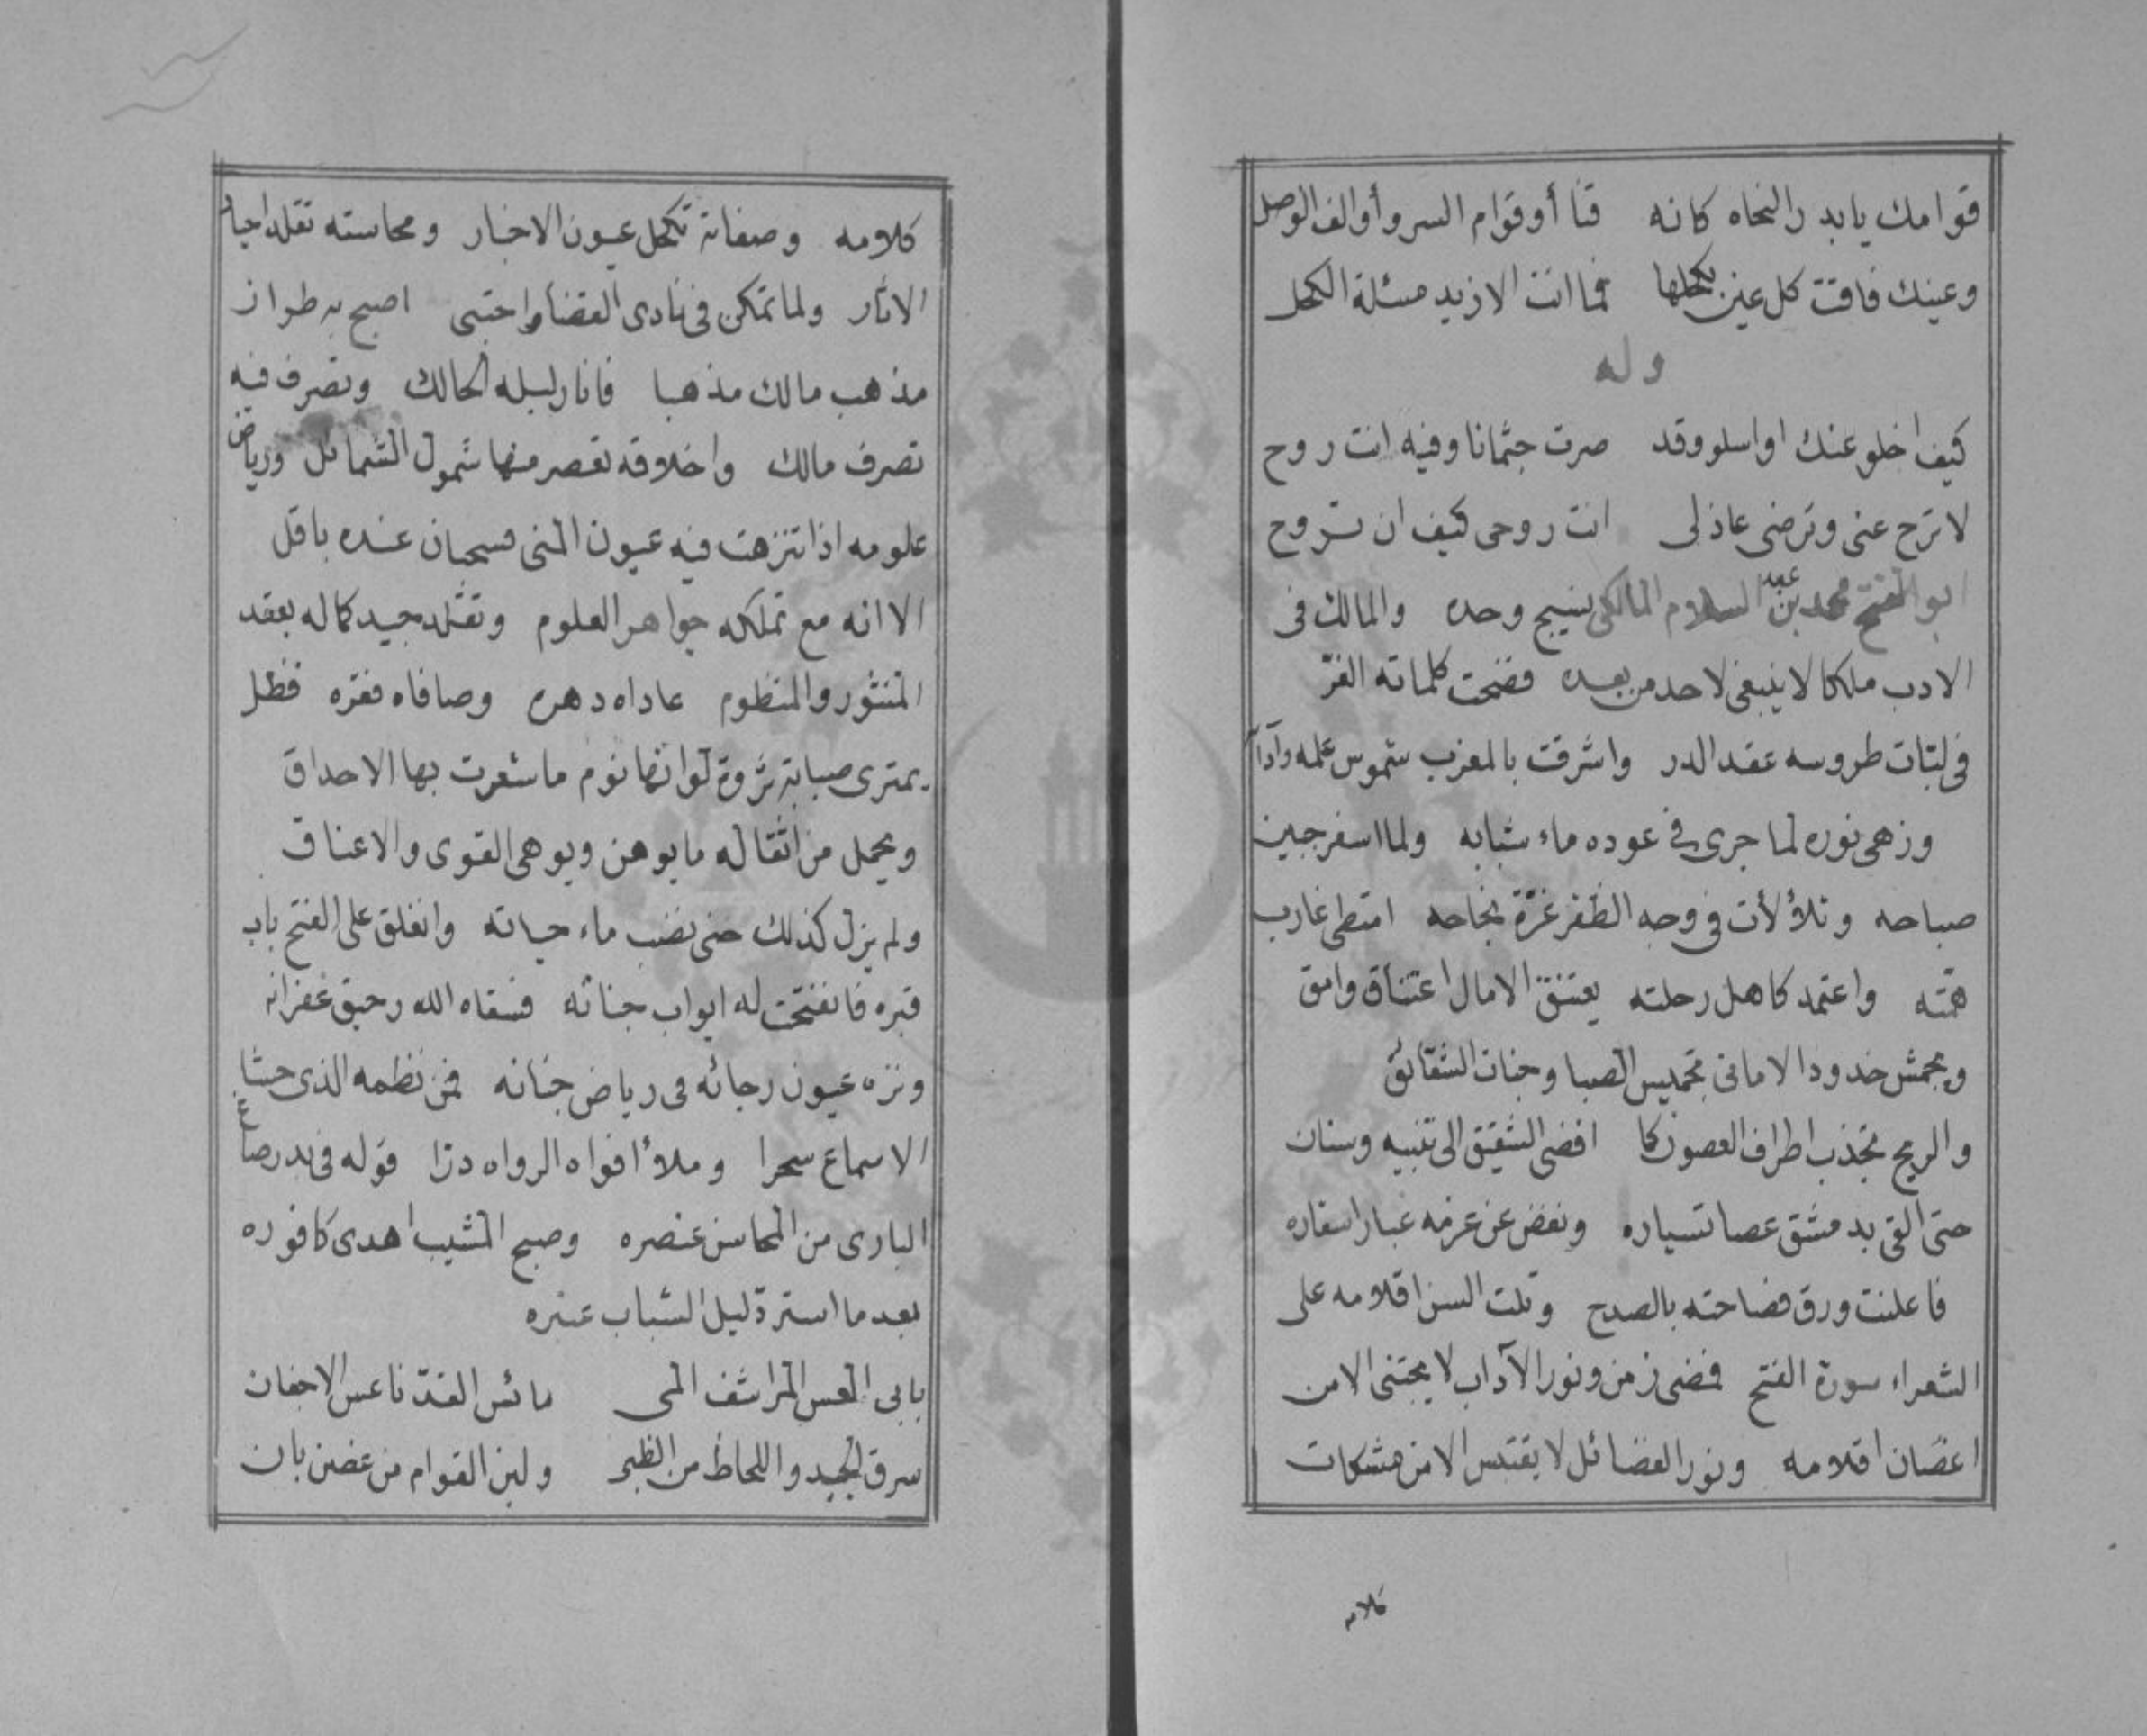 قوامك يا بدر النحاه كانه قنا أو قوام السرو أو الف الوصل
وعينك فاقت كل عين بكحلها فما انت الا زيد مسئلة الكحل
وله
كيف اخلو عنك او اسلو وقد صرت جثمانا وفيه انت روح
لا ترح عنى وترضى عاذلى انت روحى كيف ان تروح
ابو الفتح محمد بن عبد السلام المالكى نسيج وحده والمالك فى
الادب ملكا لا ينبغى لاحد من بعده فضحت كلماته الغرّ
فى لبّات طروسه عقد الدر واشرقت بالمغرب شموس علمه وآدا
وزهى نوره لما جرى فى عوده ماء شبابه ولما اسفر جبين
صباحه وتلألأت فى وجه الظفر غرّة نجاحه امتطى غارب
همّته واعتمد كاهل رحلته يعتنق الامال اعتناق وامق
ويجمش خدود الامانى تجميس الصبا وجنات الشقائق
والريح تجذب اطراف الغصون كما افضى الشقيق الى تنبيه وسنان
حتى القى بدمشق عصا تسياره ونفض عن عزمه غبار اسفاره
فاعلنت ورق فصاحته بالصدح وتلت السن اقلامه على
الشعراء سورة الفتح فمضى زمن ونور الآداب لا يجتنى الا من
اغصان اقلامه ونور الفضائل لا يقتبس الا من مشكات
كلامه
كلامه وصفاته تكحل عيون الاخبار ومحاسنه تقلد اجياد
الاثار ولما تمكن فى نادى القضا واحتبى اصبح به طراز
مذهب مالك مذهبا فانار ليله الحالك وتصرف فيه
تصرف مالك واخلاقه تقصر منها شمول الشمائل ورياض
علومه اذا تنزهت فيه عيون المنى فسحبان عنده باقل
الا انه مع تملكه جواهر العلوم وتقلد جيد كماله بعقد
المنثور والمنظوم عاداه دهره وصافاه فقره فظل
يمترى صبابة ثروة لو انها نوم ما شعرت بها الاحداق
ويحمل من اثقاله ما يوهن ويوهى القوى والاعناق
ولم يزل كذلك حتى نضب ماء حياته وانغلق على الفتح باب
قبره فانفتحت له ابواب جناته فسقاه الله رحيق غفرانه
ونزه عيون رجائه فى رياض جنانه فمن نظمه الذى حشا
الاسماع سحرا وملأ افواه الرواه درّا قوله فى بدر صاغ
البارى من المحاسن عنصره وصبح المشيب اهدى كافوره
بعد ما استردّ ليل الشباب عنبره
بابى العس المراشف المى مائس القدّ ناعس الاجفان
سرق الجيد واللحاظ من الظبى ولين القوام من غصن بان